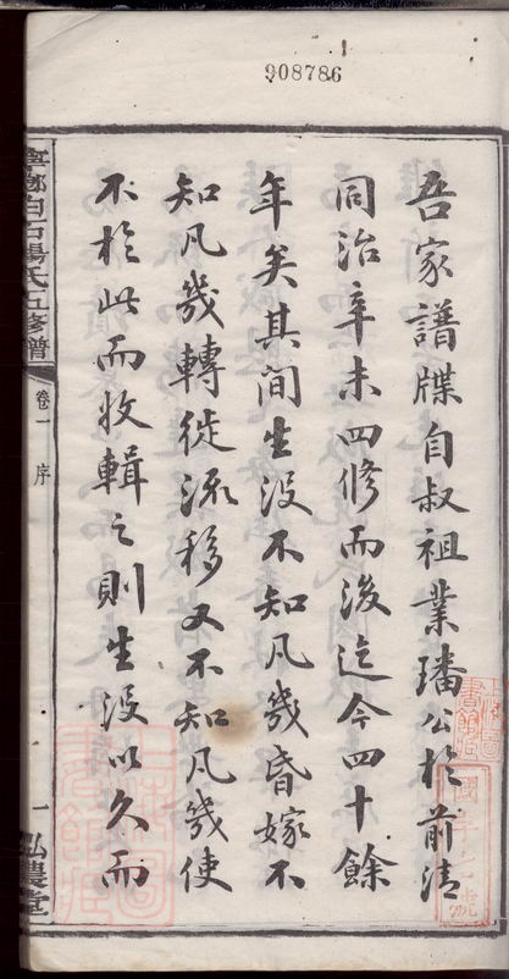 908786
吾家譜牒自叔祖業璠公於前清
同治辛未四修而後迄今四十餘
年矣其間生沒不知凡幾昏嫁不
知凡幾轉徙流移又不知凡幾使
不於此而收輯之則生沒以久而
寧鄉白石楊氏五修譜
卷一 序
一
弘農堂